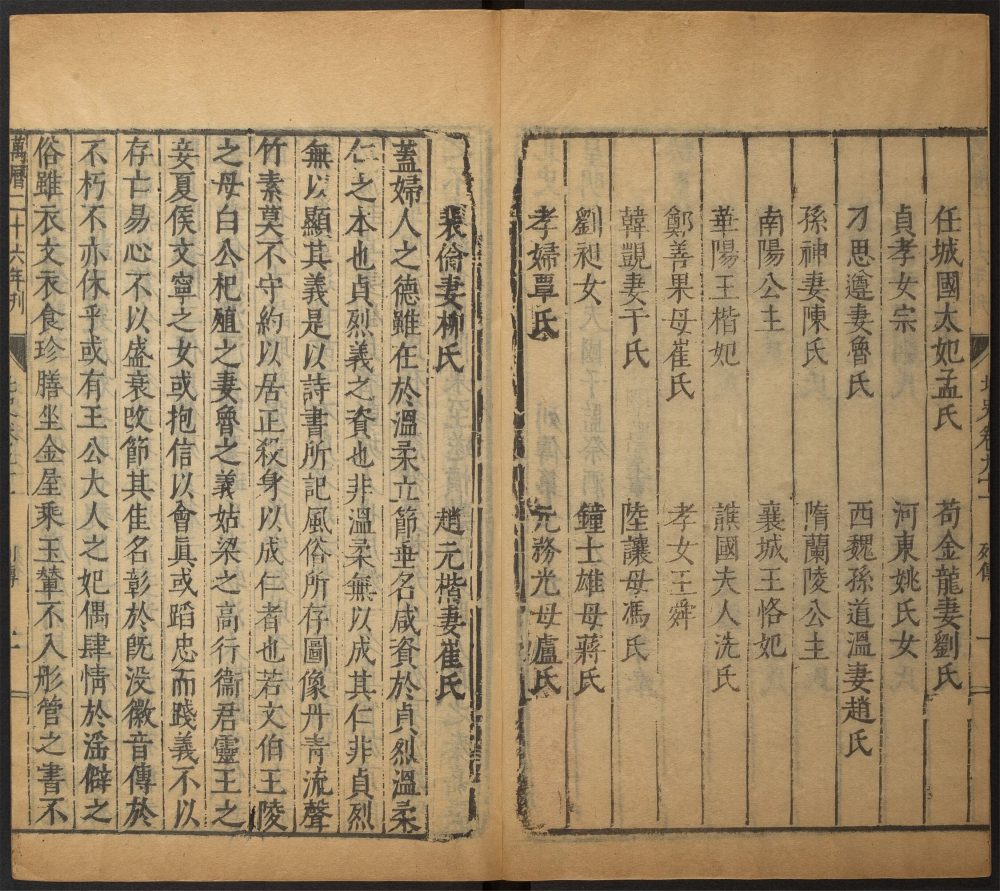 任城國太妃孟氏 苟金龍妻劉氏
貞孝女宗 河東姚氏女
刁思遵妻魯氏 西魏孫道溫妻趙氏
孫神妻陳氏 隋蘭陵公主
南陽公主 襄城王恪妃
華陽王楷妃 譙國夫人洗氏
鄭善果母崔氏 孝女王舜
韓覬妻于氏 陸讓母馮氏
劉昶女 鐘士雄母蔣氏
孝婦覃氏 元務光母盧氏
裴倫妻柳氏 趙元楷妻崔氏
蓋婦人之德雖在於溫柔立節垂名咸資於貞烈溫柔
仁之本也貞烈義之資也非溫柔無以成其仁非貞烈
無以顯其義是以詩書所記風俗所存圖像丹青流聲
竹素莫不守約以居正殺身以成仁者也若文伯王陵
之母白公杞殖之妻魯之義姑梁之高行衞君靈王之
妾夏侯文寧之女或抱信以會真或蹈忠而踐義不以
存亡易心不以盛衰改節其隹名彰於既没徽音傳於
不朽不亦休乎或有王公大人之妃偶肆情於滛僻之
俗雖衣文衣食珍膳坐金屋乘玉輦不入彤管之書不
萬曆二十六年刊